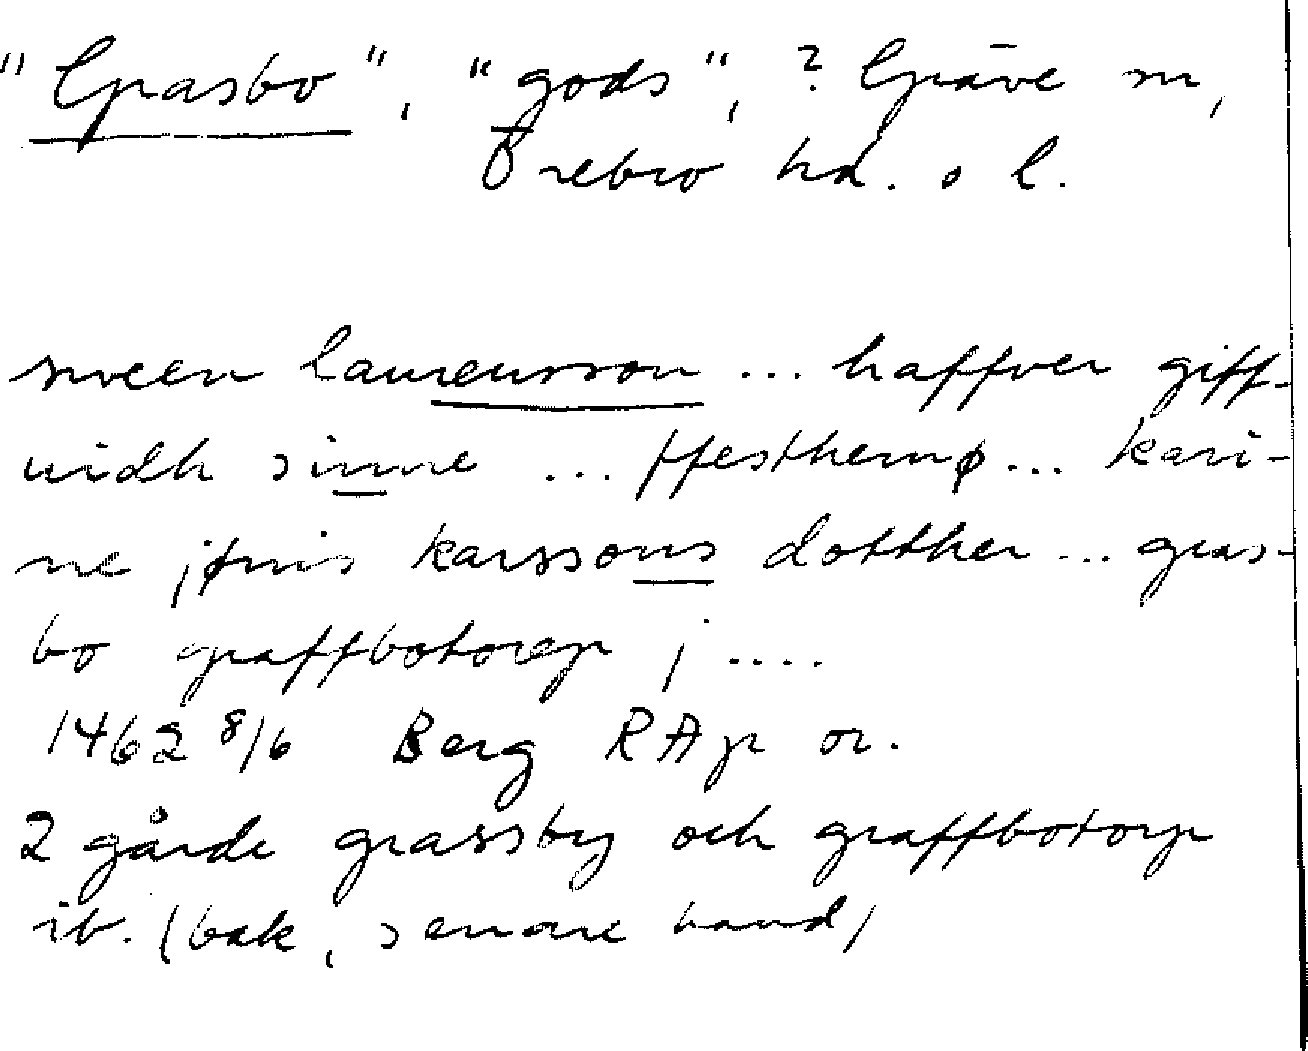 "Grasbo", "gods", ? Gräve sn,
Örebro hd. o l.
sween laurensson ... haffver giff-
uidh sinne ... ffesthemø ... kari-
ne jønis karssons dotther ... gras-
bo graffbotorp j ....
1462 8/6 Berg RAp or.
2 gårde grassby och graffbotorp
ib. (bak, senare hand)